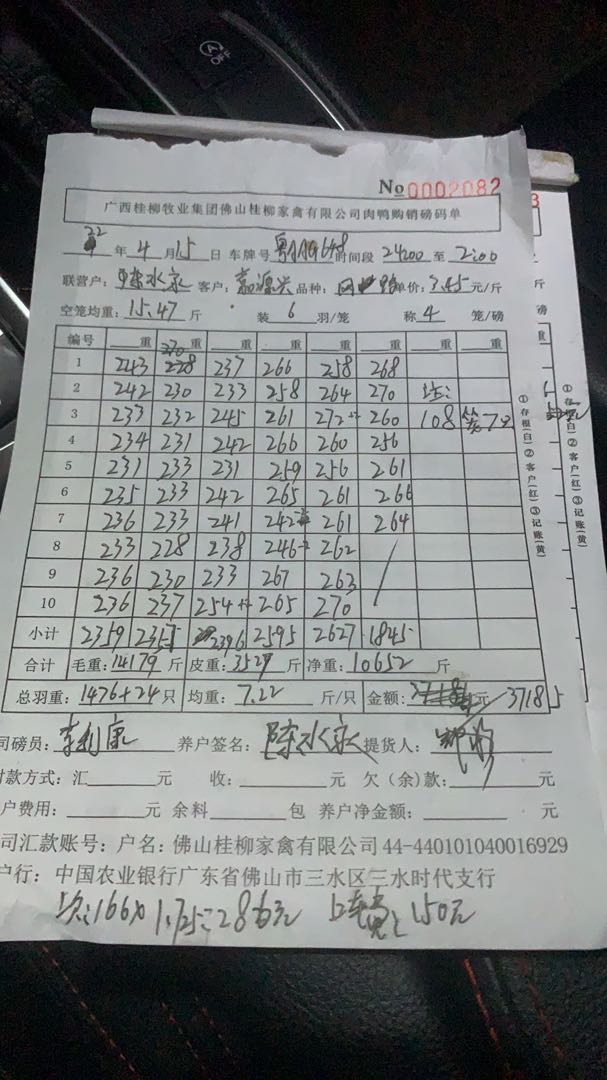 No 0002082
广西桂柳牧业集团佛山桂柳家禽有限公司肉鸭购销磅码单
22 年 4 月 15 日 车牌号 时间段 24:00 至 2:00
联营户: 陈水泉 客户: 嘉源兴 品种: 单价: 3.45 元/斤
空笼均重: 15.47 斤 装 6 羽/笼 称 4 笼/磅
编号 重 重 重 重 重 重 重 重
1 243 228 237 266 258 268
2 242 230 233 258 264 270
3 233 232 245 261 272 260 108
4 234 231 242 266 260 256
5 231 233 231 259 256 261
6 235 233 242 265 261 266
7 236 233 241 242 261 264
8 233 228 238 246 262
9 236 230 233 267 263
10 236 237 254 265 270
小计 2359 2357 2396 2595 2627 1845
合计 毛重: 14179 斤 皮重: 3527 斤 净重: 10652 斤
总羽重: 1476+24 只 均重: 7.22 斤/只 金额: 元 37185
司磅员: 李利康 养户签名: 陈水泉 提货人:
付款方式: 汇 元 收: 元 欠(余)款: 元
户费用: 元 余料 包 养户净金额: 元
司汇款账号: 户名: 佛山桂柳家禽有限公司 44-440101040016929
户行: 中国农业银行广东省佛山市三水区三水时代支行
166 1.725 286元 150元
①存根(白)②客户(红)③记账(黄)
①存根(白)②客户(红)③记账(黄)